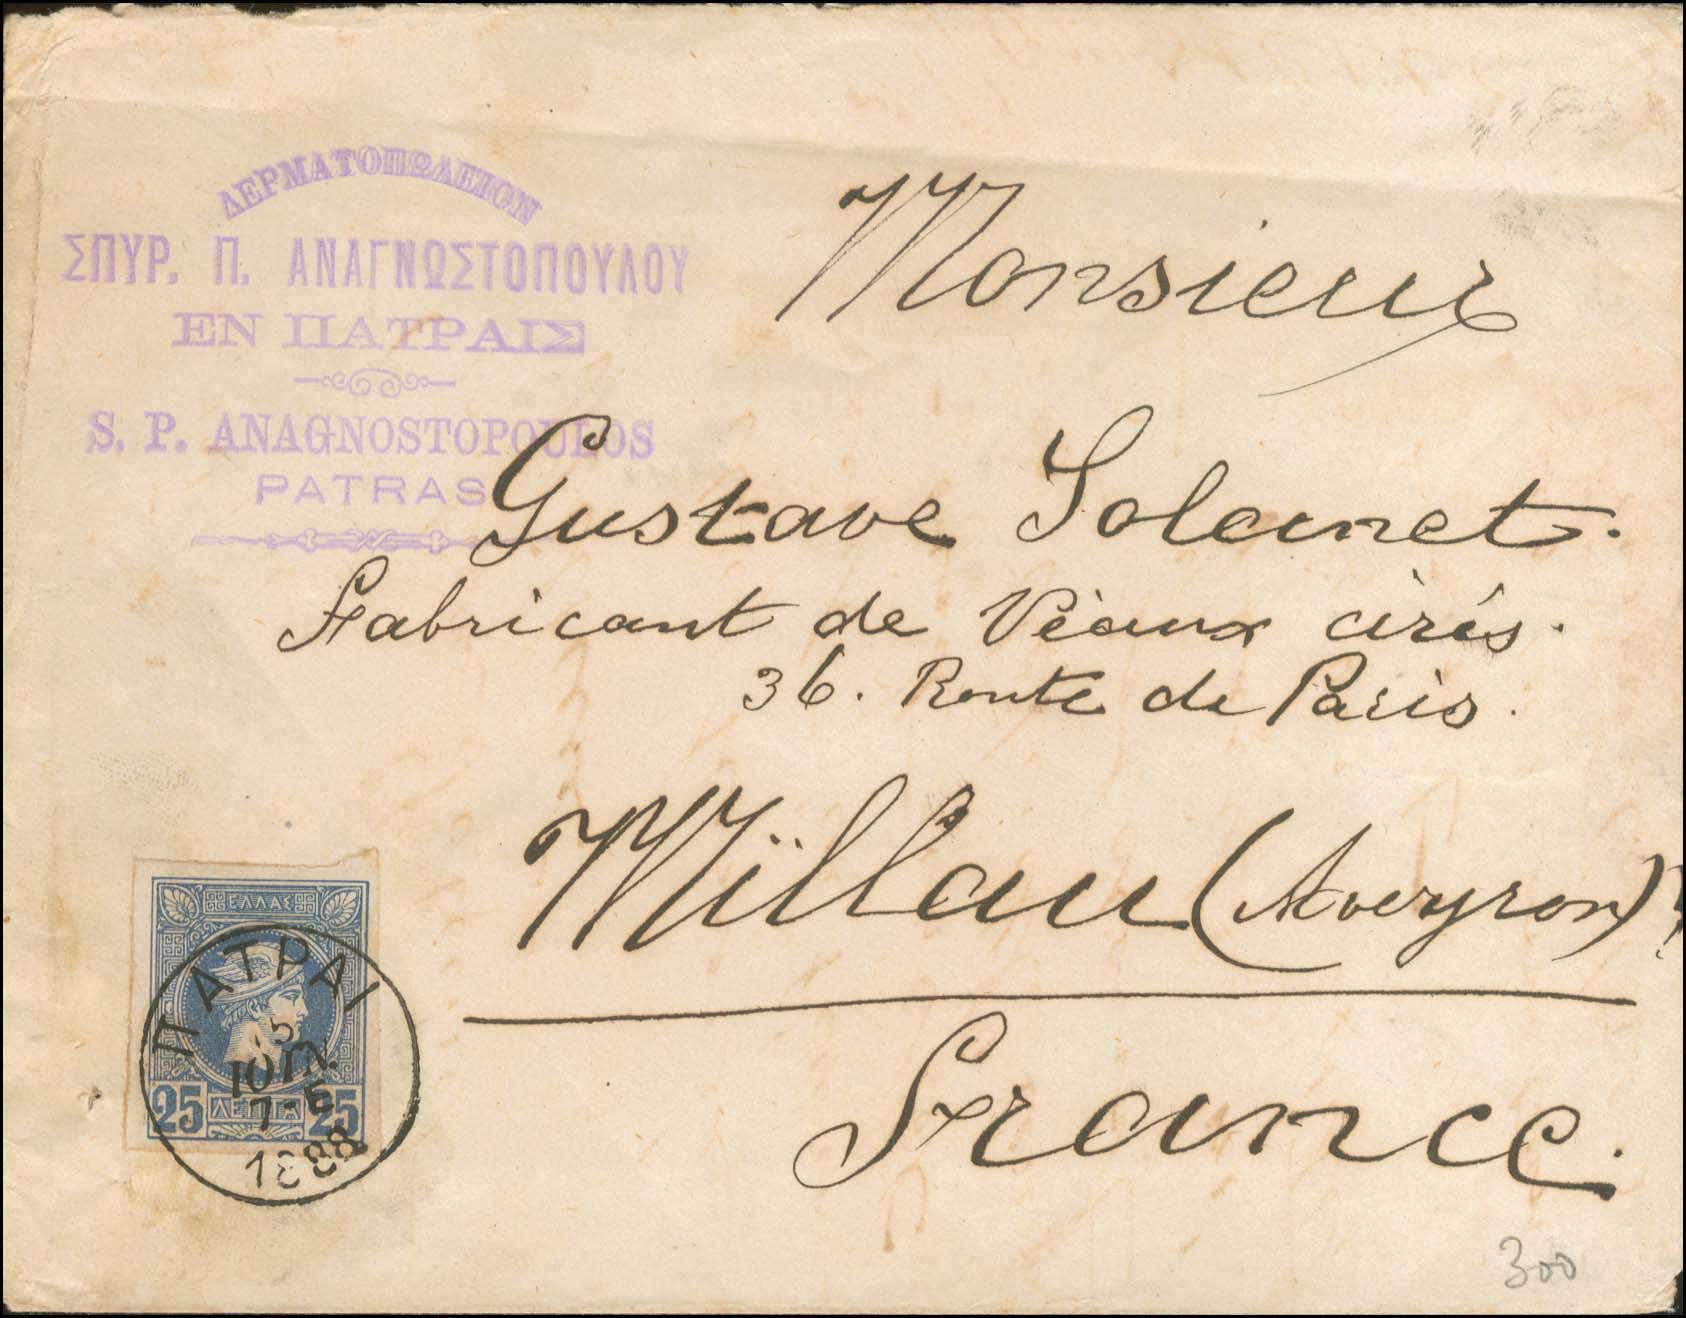 ΔΕΡΜΑΤΟΠΩΛΕΙΟΝ
ΣΠΥΡ. Π. ΑΝΑΓΝΩΣΤΟΠΟΥΛΟΥ
ΕΝ ΠΑΤΡΑΙΣ
S. P. ANAGNOSTOPOULOS
PATRAS
Monsieur
Gustave Solanet.
Fabricant de Véaux cirés.
36. Route de Paris.
Millau (Aveyron)
France.
ΕΛΛΑΣ
25 ΛΕΠΤΑ 25
ΠΑΤΡΑΙ
5
ΙΟΥΛ.
7-Ε
1888
300